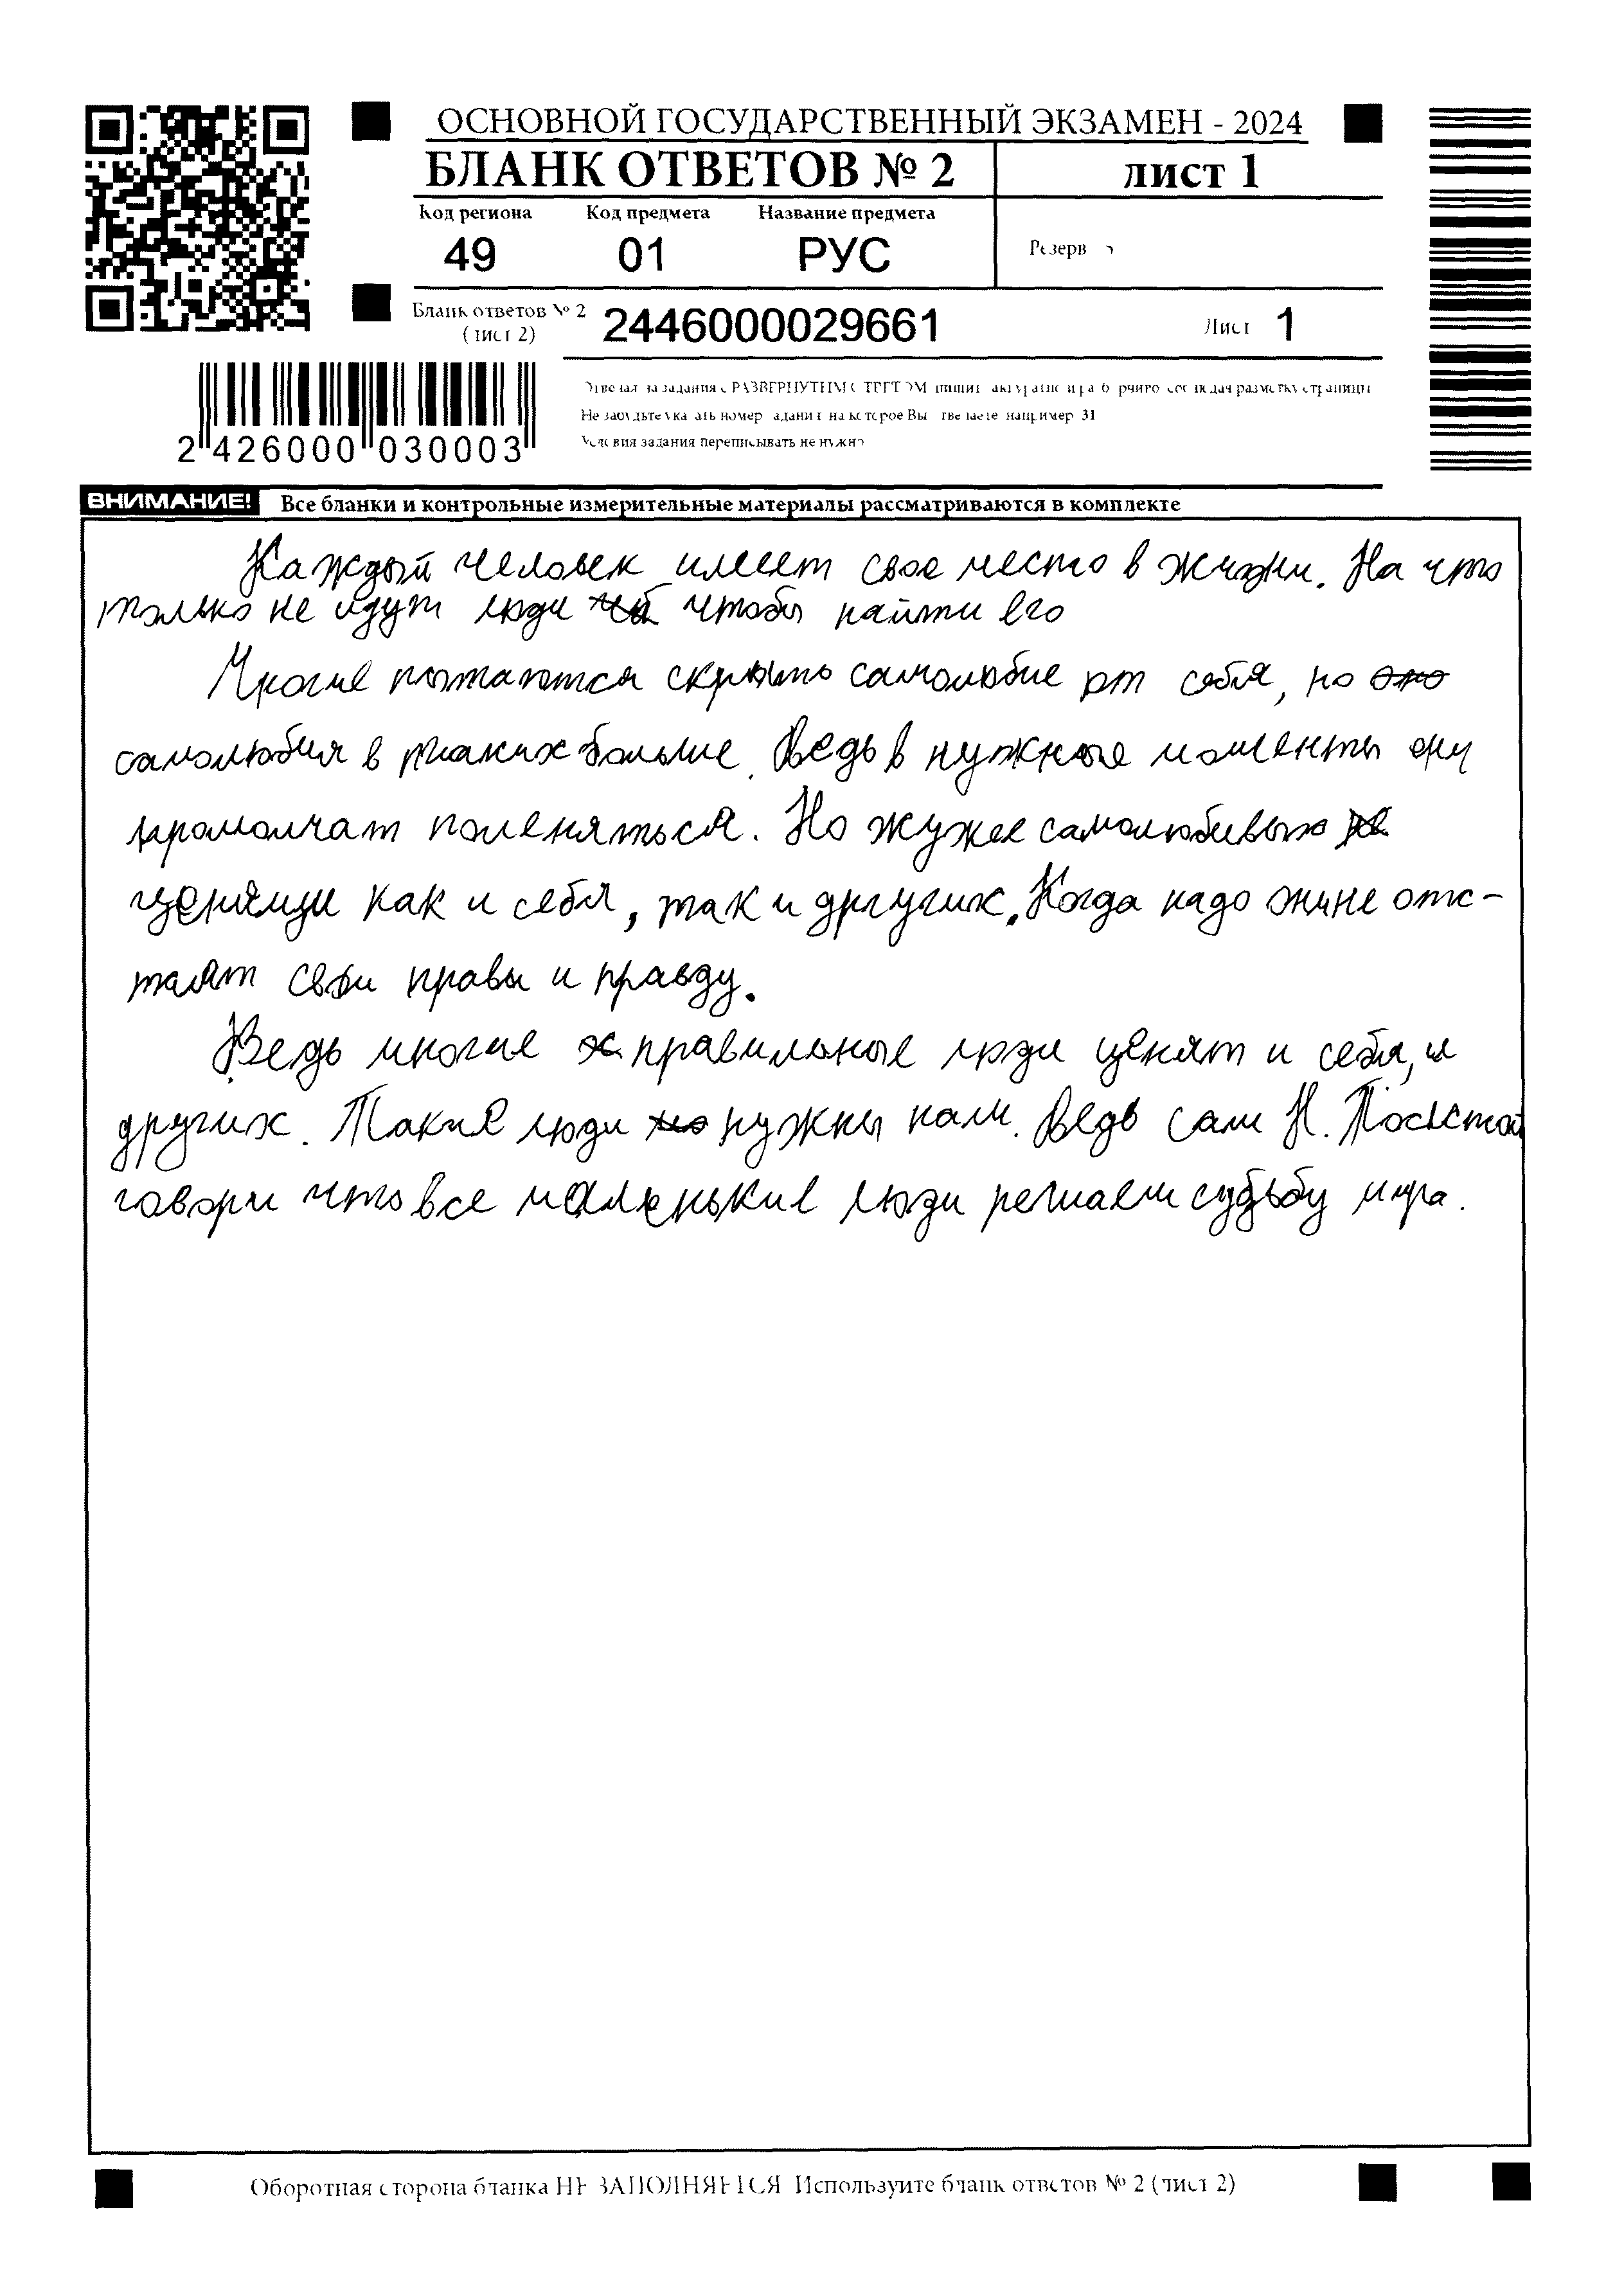 ОСНОВНОЙ ГОСУДАРСТВЕННЫЙ ЭКЗАМЕН - 2024
БЛАНК ОТВЕТОВ № 2
ЛИСТ 1
Код региона Код предмета Название предмета
49 01 РУС
Резерв
Бланк ответов № 2
(лист 2)
2446000029661
Лист 1
2 426000 030003
Не забудьте указать номер задания на которое Вы отвечаете например 31
Условия задания переписывать не нужно
ВНИМАНИЕ! Все бланки и контрольные измерительные материалы рассматриваются в комплекте
Каждый человек имеет свое место в жизни. На что
только не идут люди чтобы найти его
Многие пытаются скрыть самолюбие от себя, но
самолюбия в таких больше. Ведь в нужные моменты они
промолчат поленяться. Но жужее самолюбивых
ценящи как и себя, так и других. Когда надо они не отс-
таят свои правы и правду.
Ведь многие правильные люди ценят и себя, и
других. Такие люди нужны нам. Ведь сам
говори что все маленькие люди решаем судьбу мира.
Оборотная сторона бланка НЕ ЗАПОЛНЯЕТСЯ Используйте бланк ответов № 2 (лист 2)